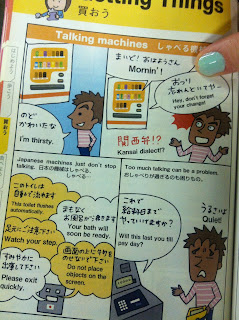 tting Things
買おう
Talking machines しゃべる
まいど! おはようさん
Mornin'!
おっつり
忘れんといてや
Hey, don't forget
your change!
のど
かわいたな
I'm thirsty.
関西弁!?
Kansai dialect!?
Japanese machines just don't stop
talking. 日本の機械はしゃべる、
しゃべる…
Too much talking can be a problem.
おしゃべりが過ぎるのも困りもの。
このトイレは
自動で流れます
This toilet flushes
automatically.
まもなく
お風呂が沸きます
Your bath will
soon be ready.
足元にご注意下さい
Watch your step.
画面の上に物を
のせないで下さい
Do not place
objects on the
screen.
すみやかに
出庫して下さい
Please exit
quickly.
これで
給料日まで
やっていけますか?
Will this last you till
pay day?
うるさいよ
Quiet!
はじめよう
買おう